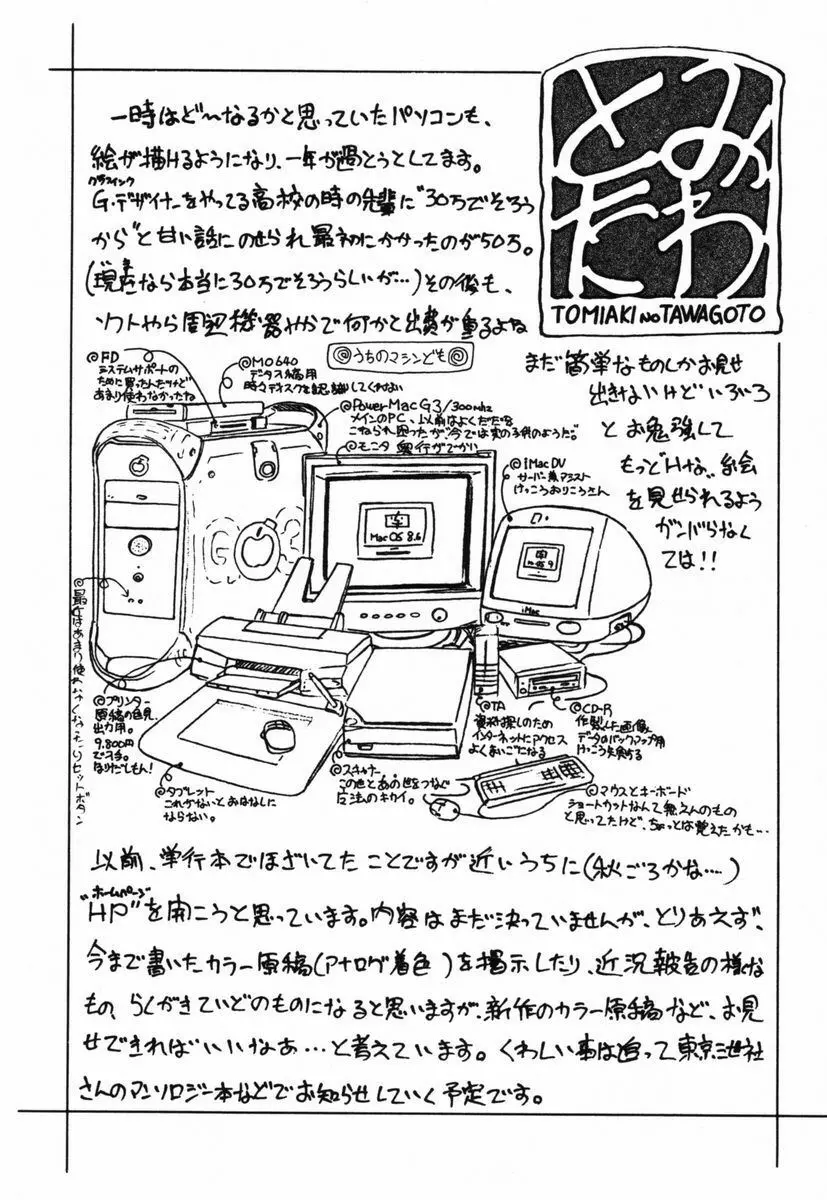 とみ
たわ
TOMIAKI NO TAWAGOTO
一時はど〜なるかと思っていたパソコンも、
絵が描けるようになり、一年が過とうとしてます。
グラフィック
G・デザイナーをやってる高校の時の先輩に"30万でそろう
から"と甘い話にのせられ最初にかかったのが50万。
(現在なら本当に30万でそろうらしいが…)その後も、
ソフトやら周辺機器やかで何かと出費が重るよね
◎うちのマシンども◎
◎FD
システムサポートの
ために買ったんだけど
あまり使わなかったね
◎MO640
データス稿用
時々ディスクを認識してくれない
◎PowerMacG3/300mhz
メインのPC、以前はよくだだを
こねられ困ったが今では実の子供のようだ。
◎モニタ 奥行がでかい
◎iMacDV
サーバー兼アシスト
けっこうおりこうさん
Mac OS 8.6
OS 9
iMac
G3
まだ簡単なものしかお見せ
出きないけどいろいろ
とお勉強して
もっどHな〃絵
を見せられるよう
ガンバらなく
ては!!
◎最近はあまり使わなくなったリセットボタン
◎プリンター
原稿の色見、
出力用。
9,800円
で入手。
ほりだしもん!
◎タブレット
これがないとおはなしに
ならない。
◎スキャナー
この世とあの世をつなぐ
魔法のキカイ。
◎TA
資料探しのため
インターネットにアクセス
よくまいごになる
◎CD-R
作製した画像
データのバックアップ用
けっこう失敗する
◎マウスとキーボード
ショートカットなんて覚えんのもの
と思ってたけど、ちょっとは覚えたかも…
以前、単行本でほざいてたことですが近いうちに(秋ごろかな…)
ホームページ
"HP"を開こうと思っています。内容はまだ決っていませんが、とりあえず、
今まで書いたカラー原稿(アナログ着色)を掲示したり、近況報告の様な
もの、らくがきていどのものになると思いますが、新作のカラー原稿など、お見
せできればいいなあ…と考えています。くわしい事は追って東京三世社
さんのアンソロジー本などでお知らせしていく予定です。